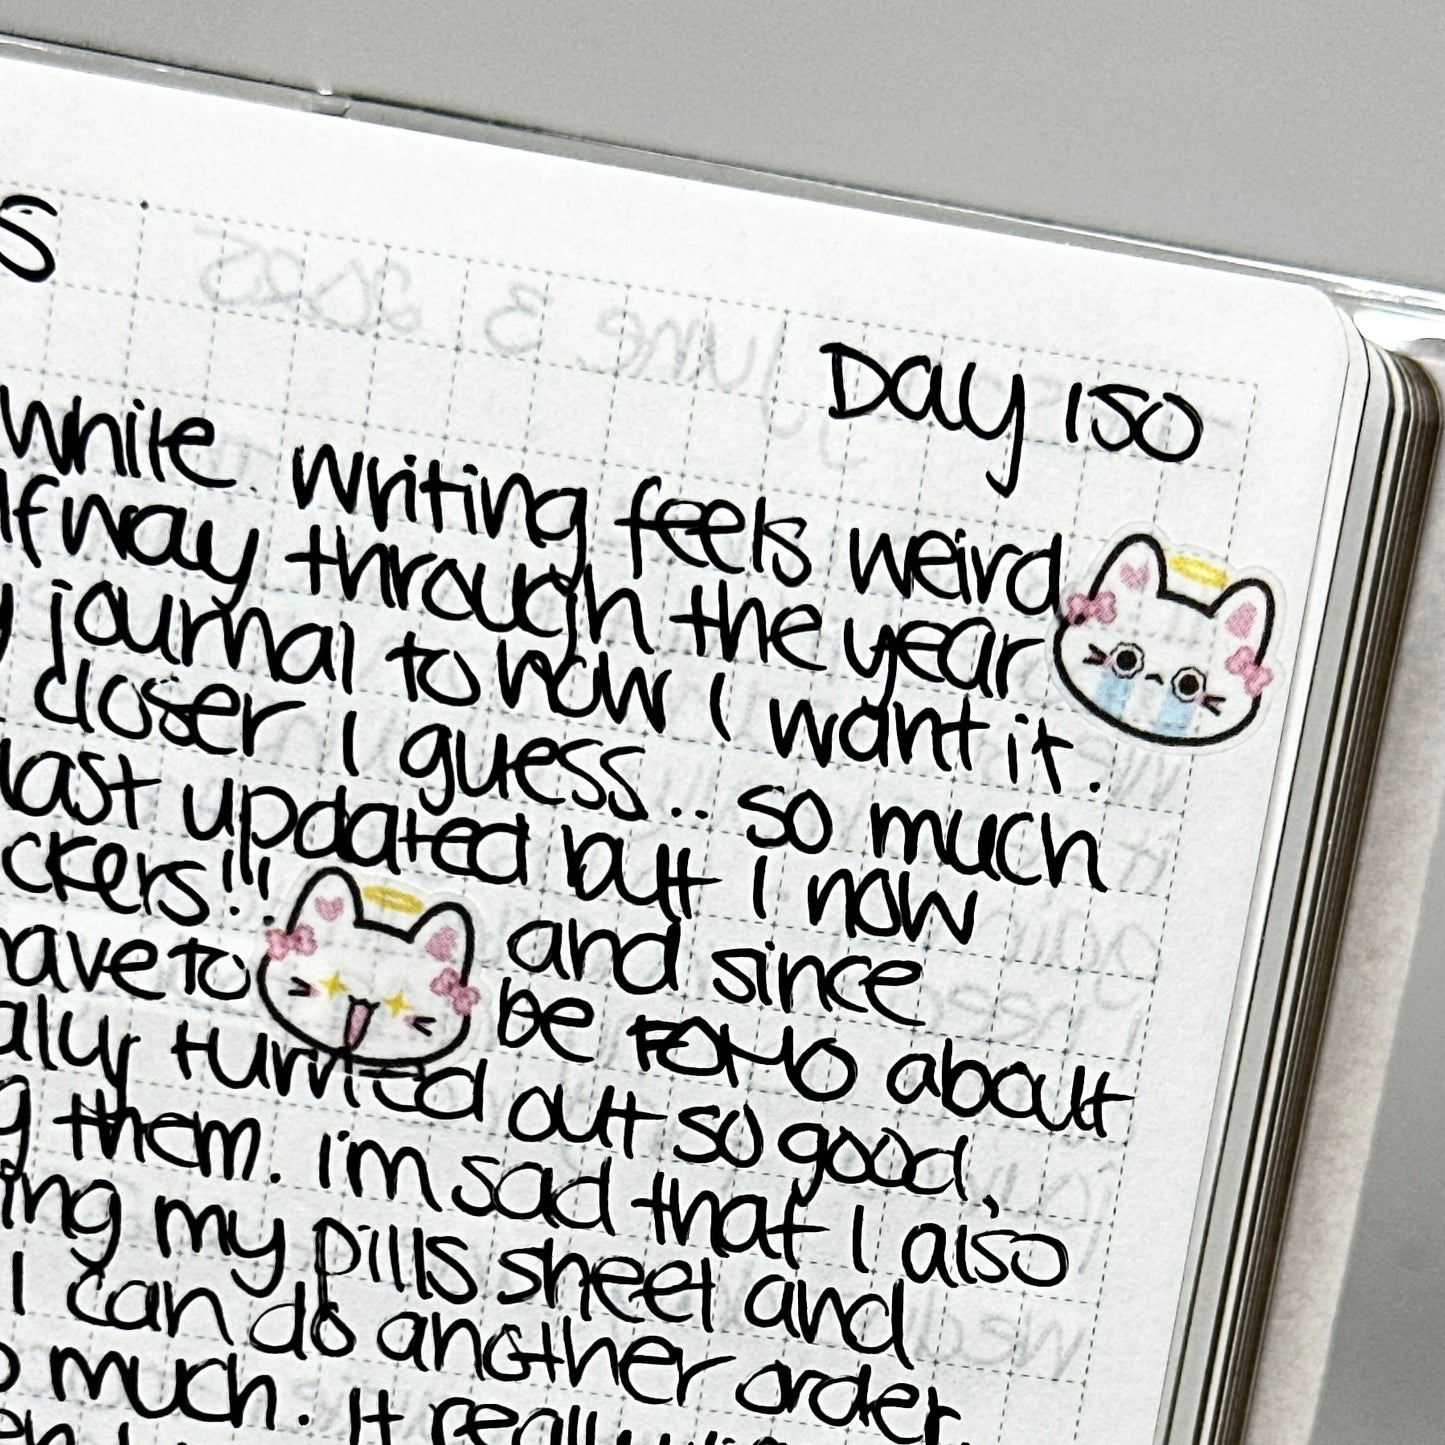 S
Day 150
while. writing feels weird
lfway through the year
journal to now I want it.
closer I guess.. so much
last updated but I now
ckers!!!
have to be FOMO about
and since
ally turned out so good,
g them. i'm sad that I also
ing my pills sheet and
I can do another order
o much. It really